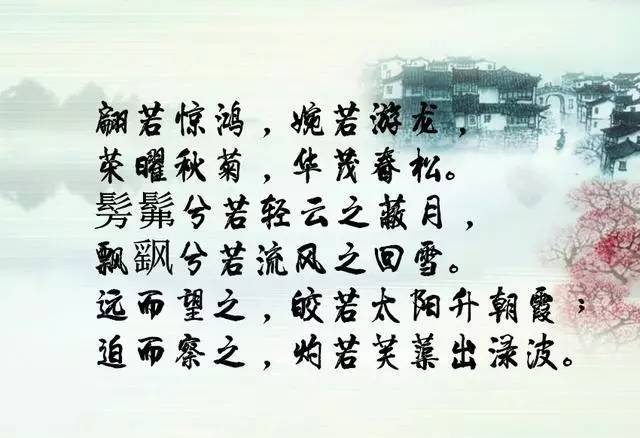 翩若惊鸿，婉若游龙，
荣曜秋菊，华茂春松。
髣髴兮若轻云之蔽月，
飘飖兮若流风之回雪。
远而望之，皎若太阳升朝霞；
迫而察之，灼若芙蕖出渌波。